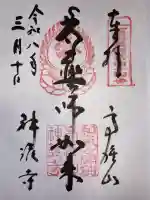 奉拝
高雄山
薬師如来
令和八年
三月十日
神護寺